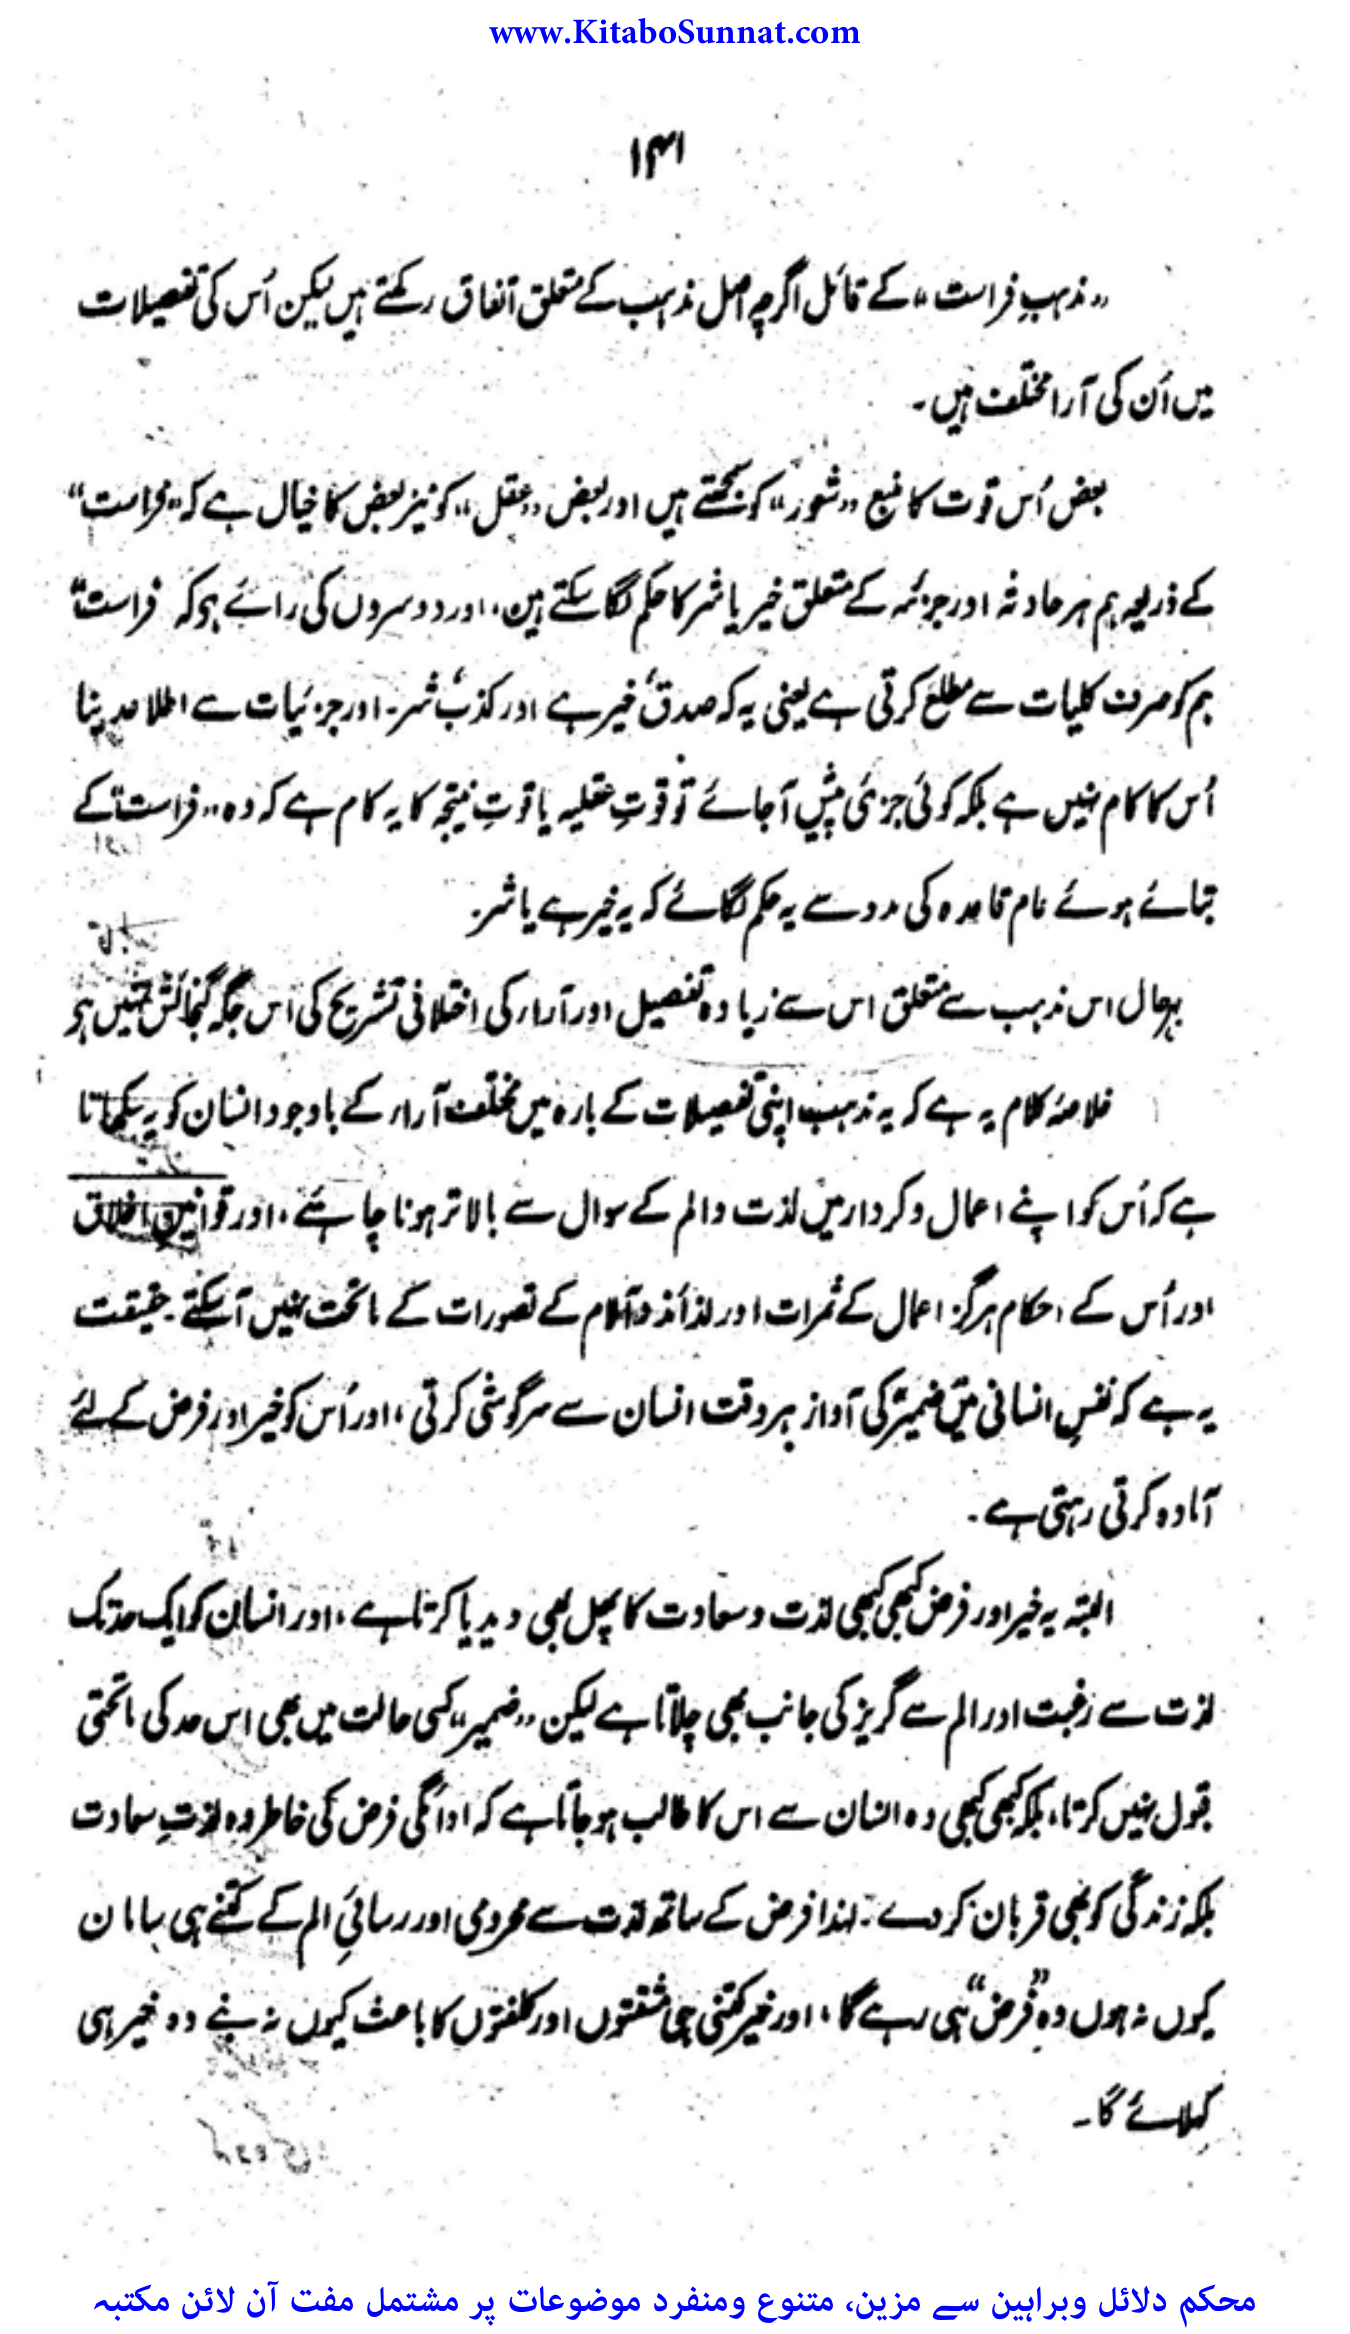 www.KitaboSunnat.com
۱۴۱
”مذہبِ فراست“ کے قائل اگرچہ اصل مذہب کے متعلق اتفاق رکھتے ہیں لیکن اُس کی تفصیلات
میں اُن کی آرا مختلف ہیں۔
بعض اُس قوت کا منبع ”شعور“ کو سمجھتے ہیں اور بعض ”عقل“ کو نیز بعض کا خیال ہے کہ ”فراست“
کے ذریعہ ہم ہر حادثہ اور جزئیہ کے متعلق خیر یا شر کا حکم لگا سکتے ہیں، اور دوسروں کی رائے ہے کہ ”فراست“
ہم کو صرف کلیات سے مطلع کرتی ہے یعنی یہ کہ صدق خیر ہے اور کذب شر۔ اور جزئیات سے اطلاع دینا
اُس کا کام نہیں ہے بلکہ کوئی جزئی پیش آجائے تو قوتِ عقلیہ یا قوتِ نتیجہ کا یہ کام ہے کہ وہ ”فراست“ کے
بتائے ہوئے عام قاعدہ کی مدد سے یہ حکم لگائے کہ یہ خیر ہے یا شر۔
بہرحال اس مذہب سے متعلق اس سے زیادہ تفصیل اور آراء کی اختلافی تشریح کی اس جگہ گنجائش نہیں ہے
خلاصۂ کلام یہ ہے کہ یہ مذہب اپنی تفصیلات کے بارہ میں مختلف آراء کے باوجود انسان کو یہ سکھاتا
ہے کہ اُس کو اپنے اعمال و کردار میں لذت و الم کے سوال سے بالاتر ہونا چاہئے، اور قوانینِ اخلاق
اور اُس کے احکام ہرگز اعمال کے ثمرات اور لذائذ و آلام کے تصورات کے ماتحت نہیں آسکتے۔ حقیقت
یہ ہے کہ نفسِ انسانی میں ضمیر کی آواز ہر وقت انسان سے سرگوشی کرتی، اور اُس کو خیر اور فرض کے لئے
آمادہ کرتی رہتی ہے۔
البتہ یہ خیر اور فرض کبھی کبھی لذت و سعادت کا پھل بھی دیدیا کرتا ہے، اور انسان کو ایک حد تک
لذت سے رغبت اور الم سے گریز کی جانب بھی چلاتا ہے لیکن ”ضمیر“ کسی حالت میں بھی اس حد کی ماتحتی
قبول نہیں کرتا، بلکہ کبھی کبھی وہ انسان سے اس کا طالب ہوجاتا ہے کہ ادائگی فرض کی خاطر وہ لذتِ سعادت
بلکہ زندگی کو بھی قربان کردے۔ لہٰذا فرض کے ساتھ لذت سے محرومی اور رسائیِ الم کے کتنے ہی سامان
کیوں نہ ہوں وہ ”فرض“ ہی رہے گا، اور خیر کتنی ہی مشقتوں اور کلفتوں کا باعث کیوں نہ بنے وہ خیر ہی
کہلائے گا۔
محکم دلائل وبراہین سے مزین، متنوع ومنفرد موضوعات پر مشتمل مفت آن لائن مکتبہ